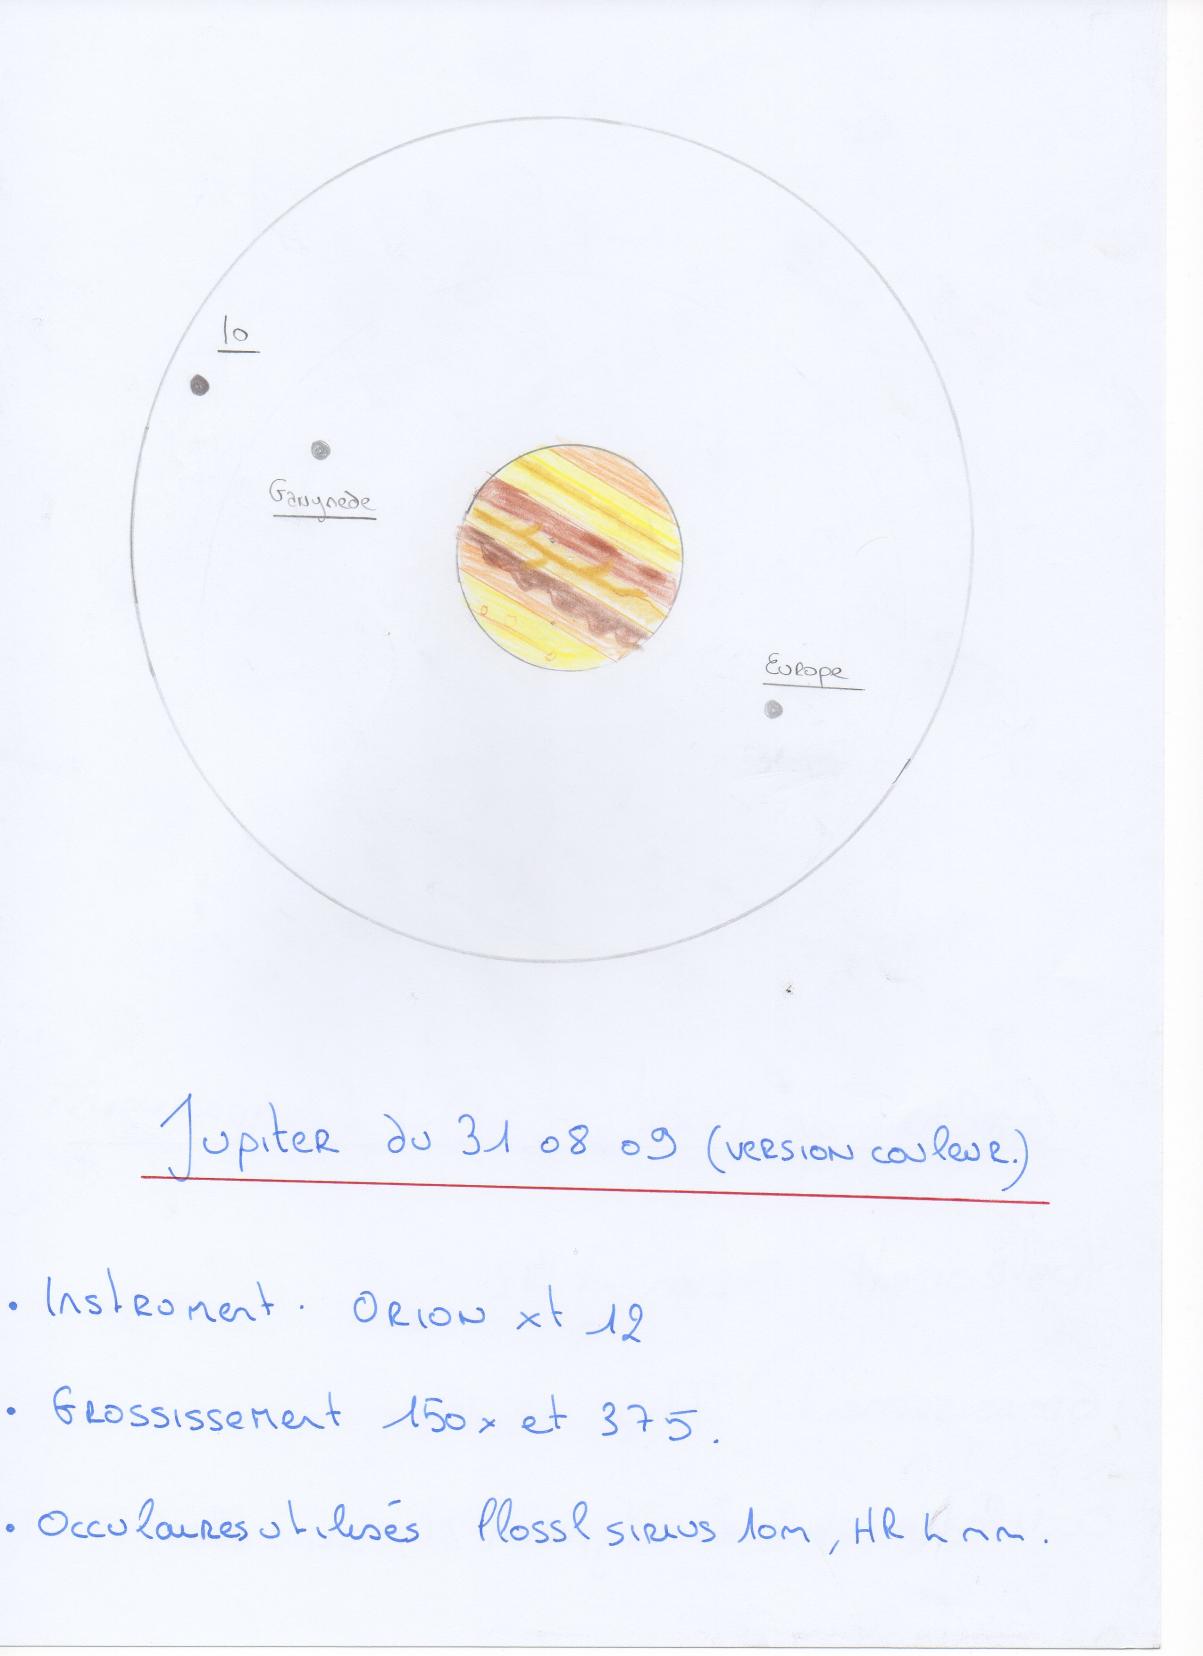 Io
Ganymede
Europe
Jupiter du 31 08 09 (version couleur.)
• Instrument. ORION xt 12
• Grossissement 150x et 375.
• Occulaires utilisés Plossl sirius 10m, HR 4 mm.